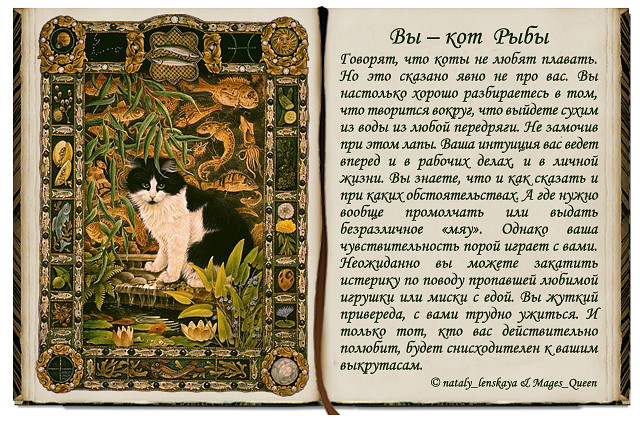 Вы – кот Рыбы
Говорят, что коты не любят плавать.
Но это сказано явно не про вас. Вы
настолько хорошо разбираетесь в том,
что творится вокруг, что выйдете сухим
из воды из любой передряги. Не замочив
при этом лапы. Ваша интуиция вас ведет
вперед и в рабочих делах, и в личной
жизни. Вы знаете, что и как сказать и
при каких обстоятельствах. А где нужно
вообще промолчать или выдать
безразличное «мяу». Однако ваша
чувствительность порой играет с вами.
Неожиданно вы можете закатить
истерику по поводу пропавшей любимой
игрушки или миски с едой. Вы жуткий
привереда, с вами трудно ужиться. И
только тот, кто вас действительно
полюбит, будет снисходителен к вашим
выкрутасам.
© nataly_lenskaya & Mages_Queen